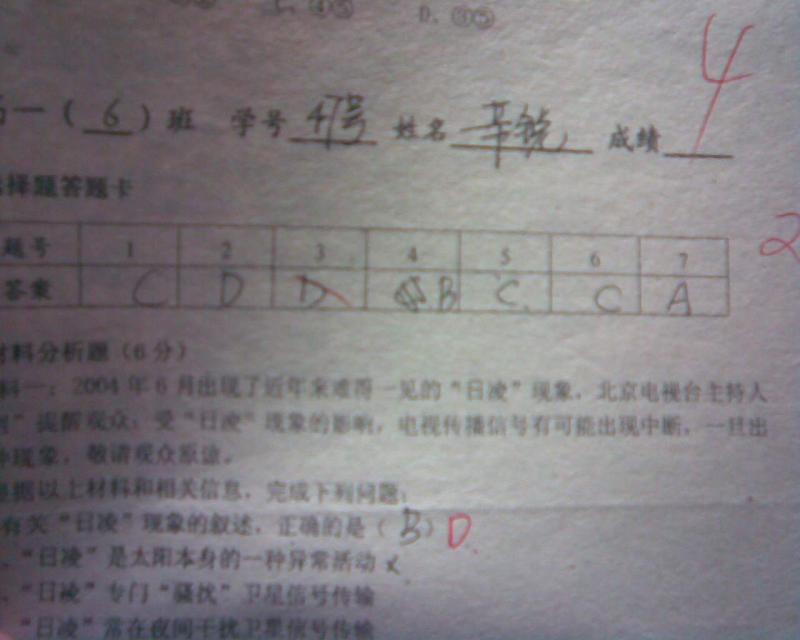 ④⑤ D.③⑤
一(6)班 学号 47号 姓名 辛锐 成绩 4
择题答题卡
题号 1 2 3 4 5 6 7
答案 C D D B C. C A
2
材料分析题(6分)
料一:2004年6月出现了近年来难得一见的“日凌”现象,北京电视台主持人
”提醒观众:受“日凌”现象的影响,电视传播信号有可能出现中断,一旦出
种现象,敬请观众原谅。
根据以上材料和相关信息,完成下列问题:
有关“日凌”现象的叙述,正确的是(B)D.
、“日凌”是太阳本身的一种异常活动 x
、“日凌”专门“骚扰”卫星信号传输
“日凌”常在夜间干扰卫星信号传输